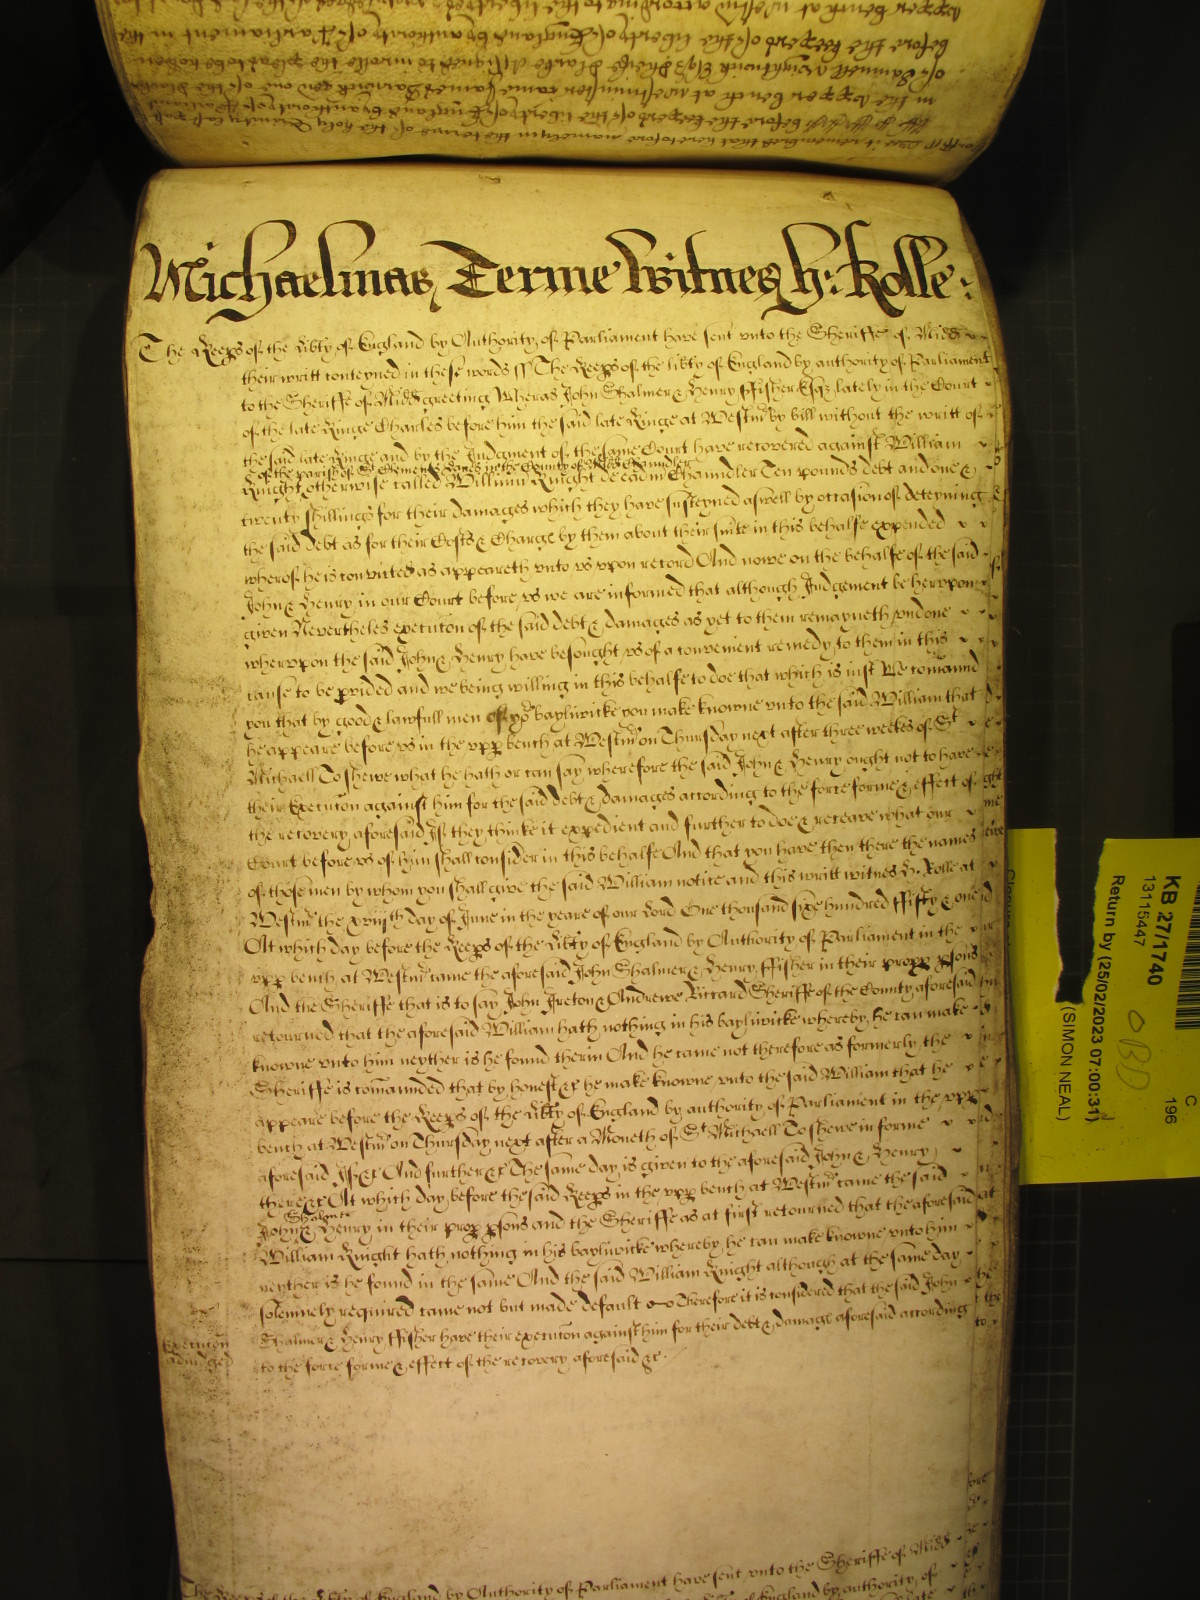 Michaelmas Terme Witnes h: Rolle:
The Keeps of the Libty of England by Authority of Parliament have sent unto the Sheriffe of Midd
their writt conteyned in these words ss The Keeps of the libty of England by authority of Parliament
to the Sheriffe of Midd greeting Wheras John Shalmer & Henry ffisher Esqs lately in the Court
of the late Kinge Charles before him the said late Kinge at Westmr by bill without the writt of
the said late Kinge and by the Judgment of the same Court have recovered against William
of the parish of St Clement Danes in the County of Midd Chandler
Knight otherwise called William Knight de eadm Chaundler Ten pounds debt and one &
twenty shillings for their damages which they have susteyned aswell by occasion of deteyning
the said debt as for their Costs & Charge by them about their suite in this behalfe expended
wherof he is convicted as appeareth unto us upon record And nowe on the behalfe of the said
John & Henry in our Court before us we are informed that although Judgement be herupon
given Nevertheles execucon of the said debt & damages as yet to them remayneth undone
wherupon the said John & Henry have besought us of a convenient remedy to them in this
cause to be pvided and we being willing in this behalfe to doe that which is just We comaund
you that by good & lawfull men of yor bayliwicke you make knowne unto the said William that
he appeare before us in the upp bench at Westmr on Thursday next after three weekes of St
Michaell To shewe what he hath or can say wherefore the said John & Henry ought not to have
their Execucon against him for the said debt & damages according to the force forme & effect of
the recovery aforesaid If they thinke it expedient and further to doe & receave what our
Court before us of him shall consider in this behalfe And that you have then there the names
of those men by whom you shall give the said William notice and this writt witnes H. Rolle at
Westmr the xviijth day of June in the yeare of our Lord One thousand sixe hundred ffifty & one
At which day before the Keeps of the Libty of England by Authority of Parliament in the
upp bench at Westmr came the aforesaid John Shalmer & Henry ffisher in their propp psons
And the Sheriffe that is to say John Ireton & Andrewe Riccard Sheriffe of the County aforesaid
retourned that the aforesaid William hath nothing in his bayliwicke whereby he can make
knowne unto him neyther is he found therin And he came not therefore as formerly the
Sheriffe is comaunded that by honest &c he make knowne unto the said William that he
appeare before the Keeps of the Libty of England by authority of Parliament in the upp
bench at Westmr on Thursday next after a Moneth of St Michaell To shewe in forme
aforesaid If &c And further &c The same day is given to the aforesaid John & Henry
there &c At which day before the said Keeps in the upp bench at Westmr came the said
Shalmer
John & Henry in their prop psons and the Sheriffe as at first retourned that the aforesaid
William Knight hath nothing in his bayliwicke whereby he can make knowne unto him
neyther is he found in the same And the said William Knight although at the same day
solemnely required came not but made default Therefore it is considered that the said John
Execucon
adiudged
Shalmer & Henry ffisher have their execucon against him for their debt & damage aforesaid according
to the force forme & effect of the recovery aforesaid &c.
The Keeps of the Libty of England by Authority of Parliament have sent unto the Sheriffe of Midd
KB 27/1740
13115447
Return by (25/02/2023 07:00:31)
(SIMON NEAL)
C
196